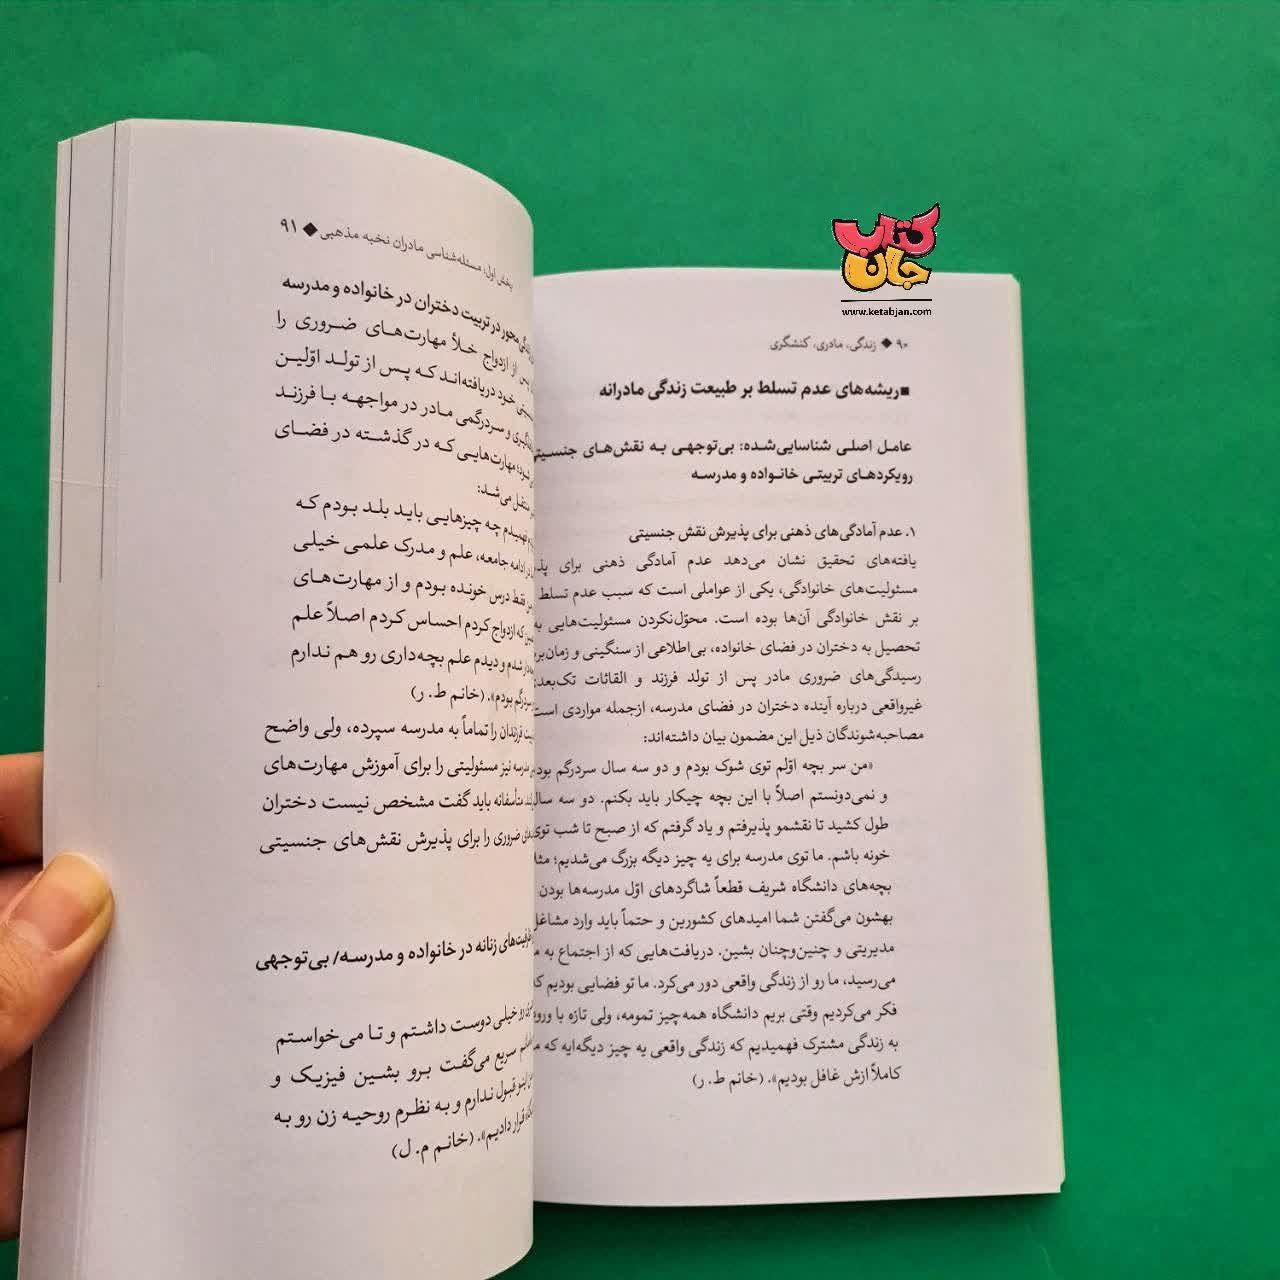 کتاب جان
www.ketabjan.com
۹۰ ◆ زندگی، مادری، کنشگری
■ ریشه‌های عدم تسلط بر طبیعت زندگی مادرانه
عامل اصلی شناسایی‌شده: بی‌توجهی به نقش‌های جنسیتی
رویکردهای تربیتی خانواده و مدرسه
۱. عدم آمادگی‌های ذهنی برای پذیرش نقش جنسیتی
یافته‌های تحقیق نشان می‌دهد عدم آمادگی ذهنی برای
مسئولیت‌های خانوادگی، یکی از عواملی است که سبب عدم تسلط
بر نقش خانوادگی آن‌ها بوده است. محوّل‌نکردن مسئولیت‌هایی
تحصیل به دختران در فضای خانواده، بی‌اطلاعی از سنگینی و
رسیدگی‌های ضروری مادر پس از تولد فرزند و القائات
غیرواقعی درباره آینده دختران در فضای مدرسه، ازجمله مواردی است
مصاحبه‌شوندگان ذیل این مضمون بیان داشته‌اند:
«من سر بچه اوّلم توی شوک بودم و دو سه سال سردرگم
و نمی‌دونستم اصلاً با این بچه چیکار باید بکنم. دو سه سال
طول کشید تا نقشمو پذیرفتم و یاد گرفتم که از صبح تا شب توی
خونه باشم. ما توی مدرسه برای یه چیز دیگه بزرگ می‌شدیم؛
بچه‌های دانشگاه شریف قطعاً شاگردهای اوّل مدرسه‌ها بودن
بهشون می‌گفتن شما امیدهای کشورین و حتماً باید وارد مشاغل
مدیریتی و چنین‌وچنان بشین. دریافت‌هایی که از اجتماع به
می‌رسید، ما رو از زندگی واقعی دور می‌کرد. ما تو فضایی بودیم
فکر می‌کردیم وقتی بریم دانشگاه همه‌چیز تمومه، ولی تازه با
به زندگی مشترک فهمیدیم که زندگی واقعی یه چیز دیگه‌ایه که
کاملاً ازش غافل بودیم». (خانم ط. ر)
بخش اول: مسئله‌شناسی مادران نخبه مذهبی ◆ ۹۱
محور در تربیت دختران در خانواده و مدرسه
پس از ازدواج خلأ مهارت‌های ضروری را
خود دریافته‌اند که پس از تولد اوّلین
و سردرگمی مادر در مواجهه با فرزند
مهارت‌هایی که در گذشته در فضای
منتقل می‌شد:
فهمیدم چه چیزهایی باید بلد بودم که
ادامه جامعه، علم و مدرک علمی خیلی
فقط درس خونده بودم و از مهارت‌های
که ازدواج کردم احساس کردم اصلاً علم
شدم و دیدم علم بچه‌داری رو هم ندارم
سردرگم بودم». (خانم ط. ر)
فرزندان را تماماً به مدرسه سپرده، ولی واضح
مدرسه نیز مسئولیتی را برای آموزش مهارت‌های
متأسفانه باید گفت مشخص نیست دختران
ضروری را برای پذیرش نقش‌های جنسیتی
زنانه در خانواده و مدرسه/ بی‌توجهی
رو خیلی دوست داشتم و تا می‌خواستم
سریع می‌گفت برو بشین فیزیک و
قبول ندارم و به نظرم روحیه زن رو به
قرار دادیم». (خانم م. ل)